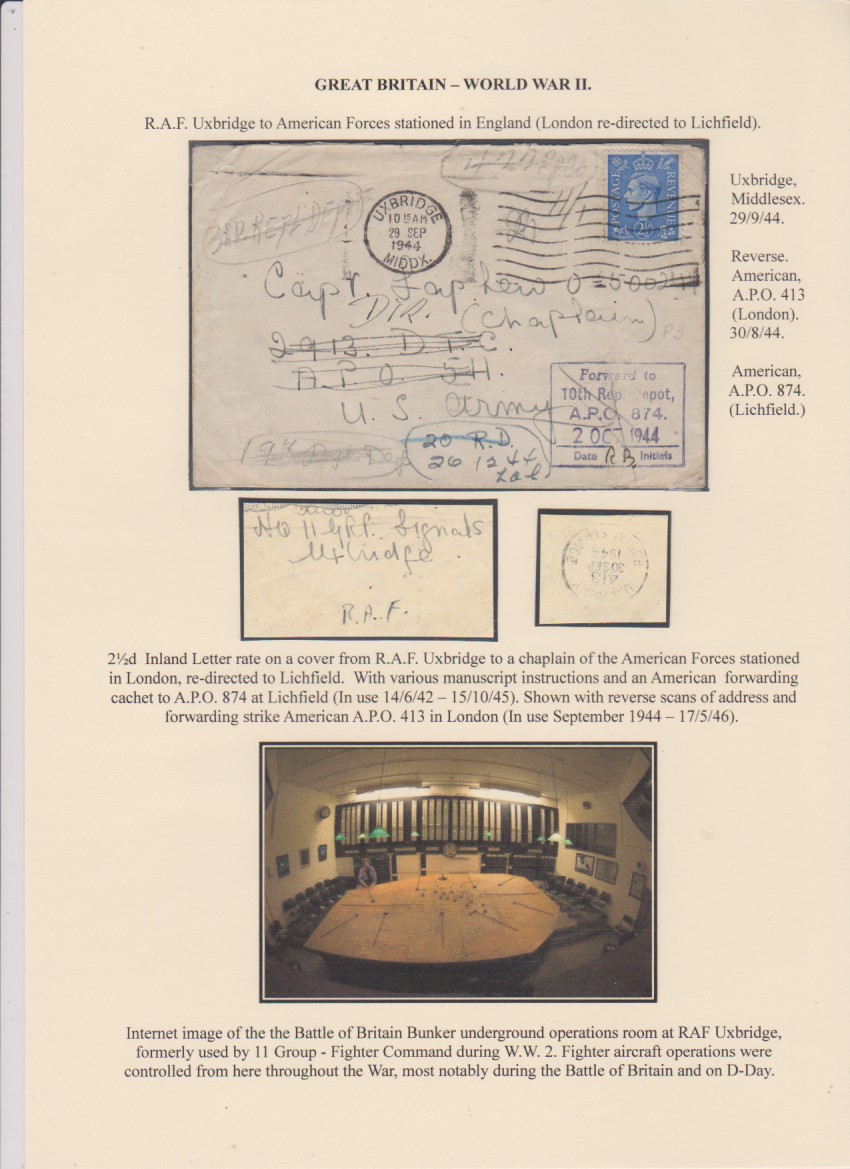 GREAT BRITAIN – WORLD WAR II.
R.A.F. Uxbridge to American Forces stationed in England (London re-directed to Lichfield).
3RD. REPL DEPOT
UXBRIDGE
10 15 AM
29 SEP
1944
MIDDX.
POSTAGE REVENUE
2½D
Capt.
DTR. (Chaplain)
2913. D.T.C.
A.P.O. 511.
U.S. Army
Forward to
10th Rep. Depot,
A.P.O. 874.
2 OCT 1944
Date R B. Initials
20 R.D.
26 12 44
Uxbridge,
Middlesex.
29/9/44.
Reverse.
American,
A.P.O. 413
(London).
30/8/44.
American,
A.P.O. 874.
(Lichfield.)
HQ 11 GRP. Signals
Uxbridge
R.A.F.
413
30 SEP
1944
2½d Inland Letter rate on a cover from R.A.F. Uxbridge to a chaplain of the American Forces stationed
in London, re-directed to Lichfield. With various manuscript instructions and an American forwarding
cachet to A.P.O. 874 at Lichfield (In use 14/6/42 – 15/10/45). Shown with reverse scans of address and
forwarding strike American A.P.O. 413 in London (In use September 1944 – 17/5/46).
Internet image of the the Battle of Britain Bunker underground operations room at RAF Uxbridge,
formerly used by 11 Group - Fighter Command during W.W. 2. Fighter aircraft operations were
controlled from here throughout the War, most notably during the Battle of Britain and on D-Day.